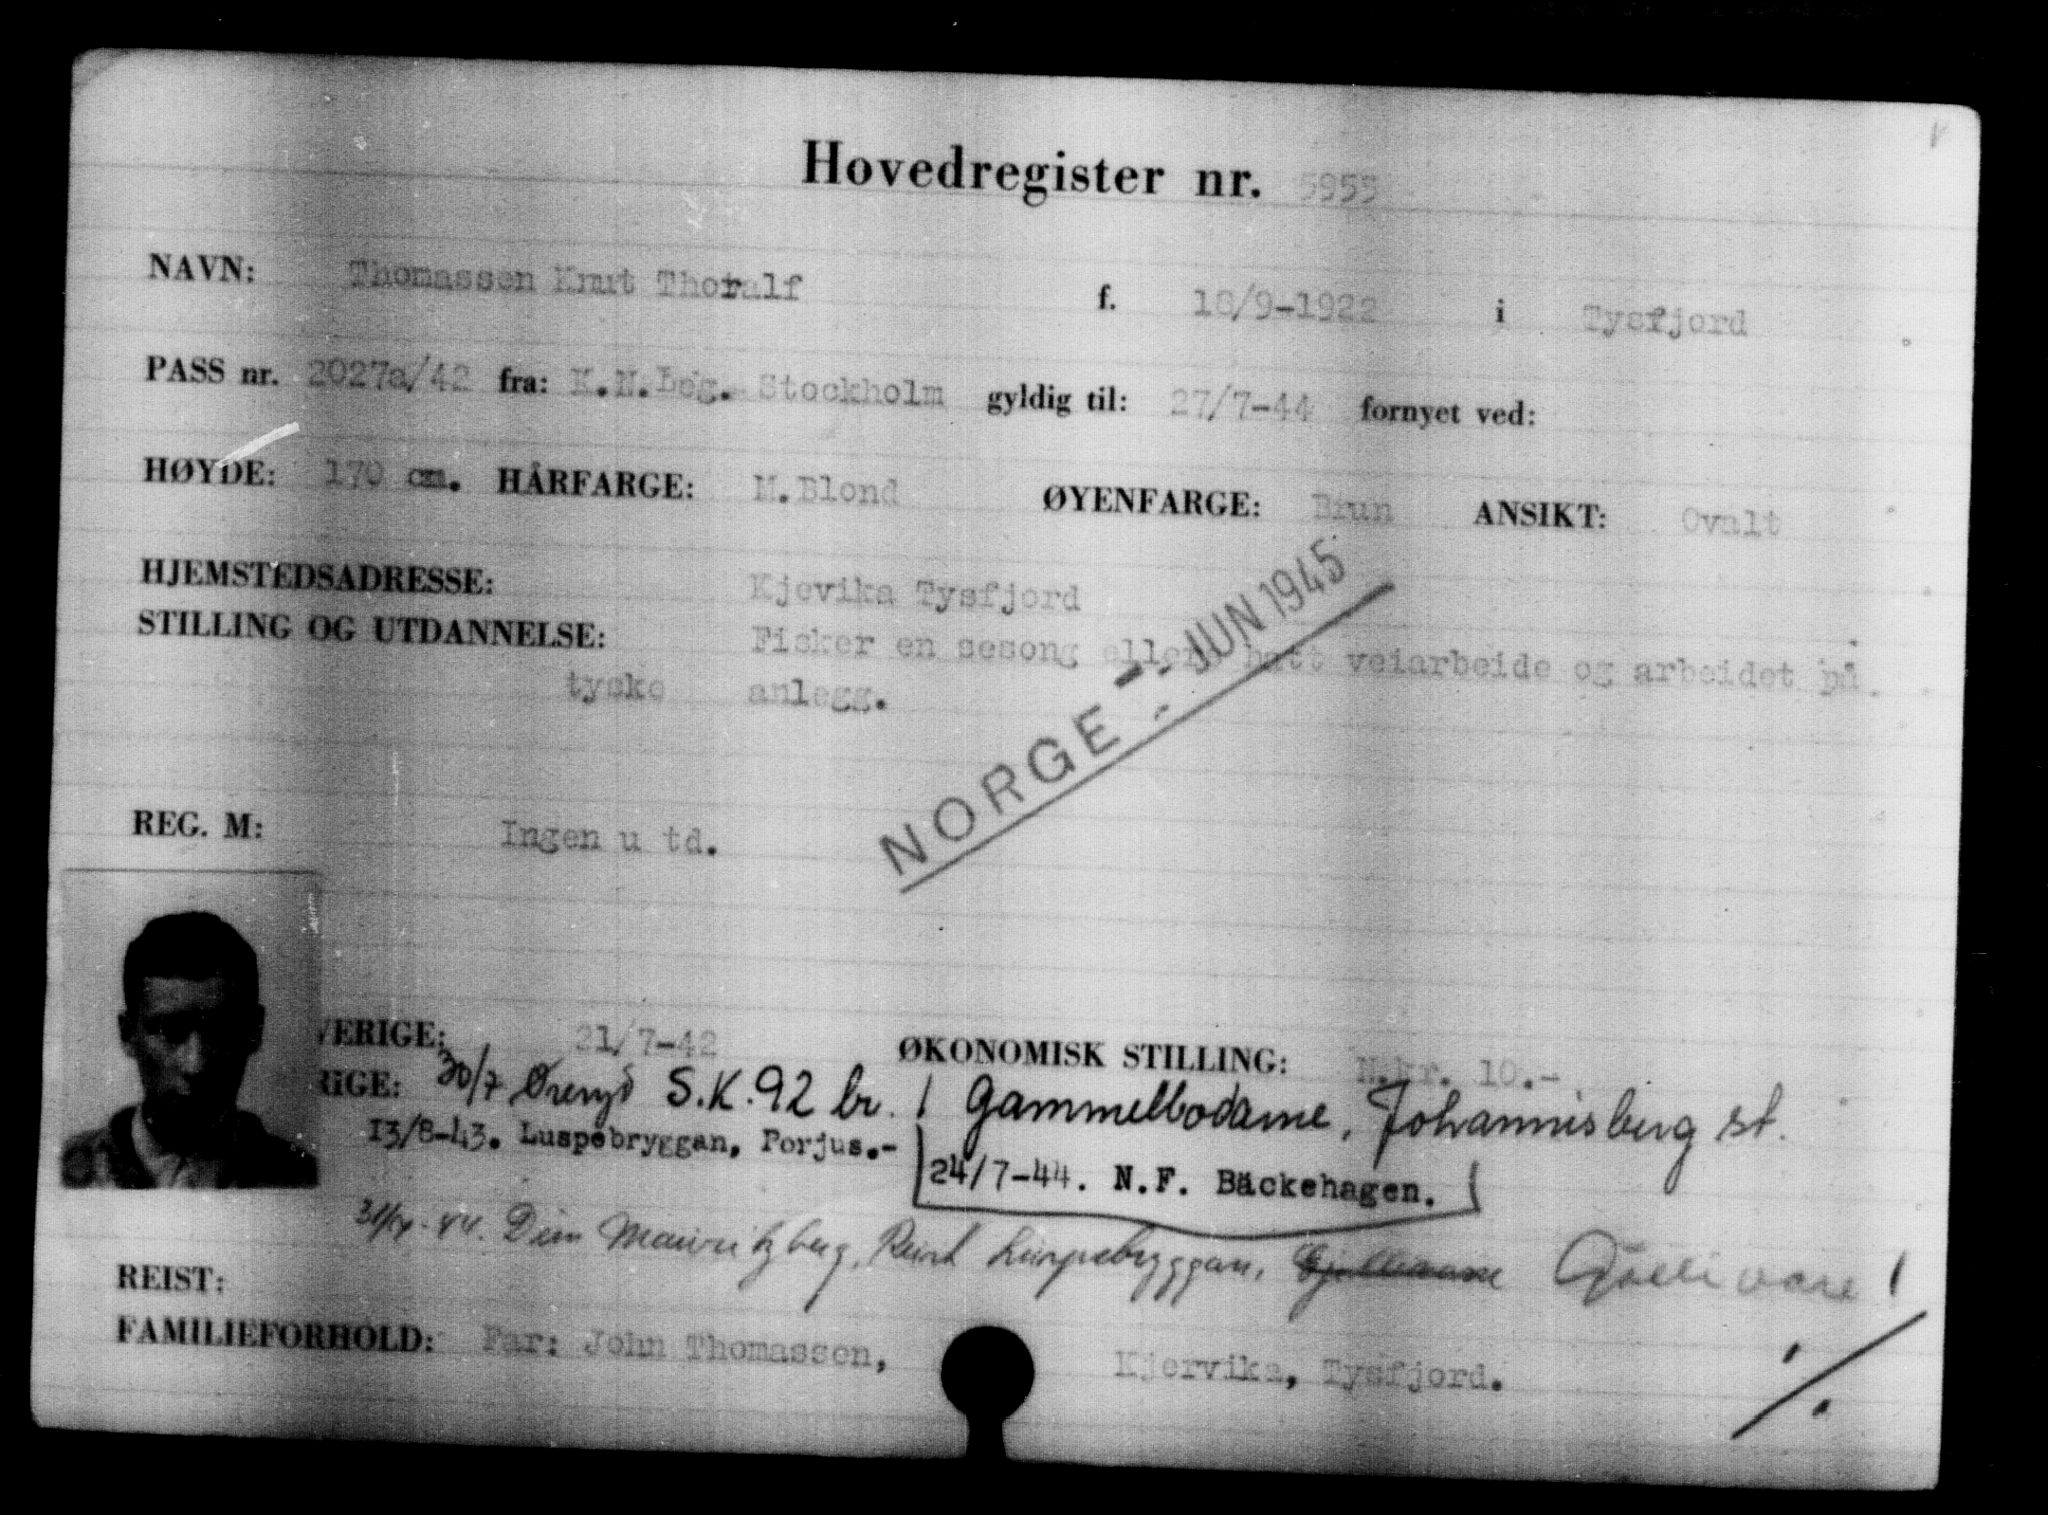 Hovedregister nr. 5955
NAVN: Thomassen Knut Thoralf f. 18/9-1922 i Tysfjord
PASS nr. 2027a/42 fra: K.N.Leg. Stockholm gyldig til: 27/7-44 fornyet ved:
HØYDE: 170 cm. HÅRFARGE: M.Blond ØYENFARGE: Brun ANSIKT: Ovalt
HJEMSTEDSADRESSE: Kjevika Tysfjord
STILLING OG UTDANNELSE: Fisker en sesong ellers hatt veiarbeide og arbeidet på
tyske anlegg.
NORGE - JUN 1945
REG. M: Ingen u td.
VERIGE: 21/7-42 ØKONOMISK STILLING: N.kr. 10.-
RIGE: 30/7 Øreryd S.K. 92 br. / Gammelbodarne, Johannisberg st.
13/8-43. Luspebryggan, Porjus.-
24/7-44. N.F. Bäckehagen.
44. Luspebryggan, Gällivare
REIST:
FAMILIEFORHOLD: Far: John Thomassen, Kjervika, Tysfjord.